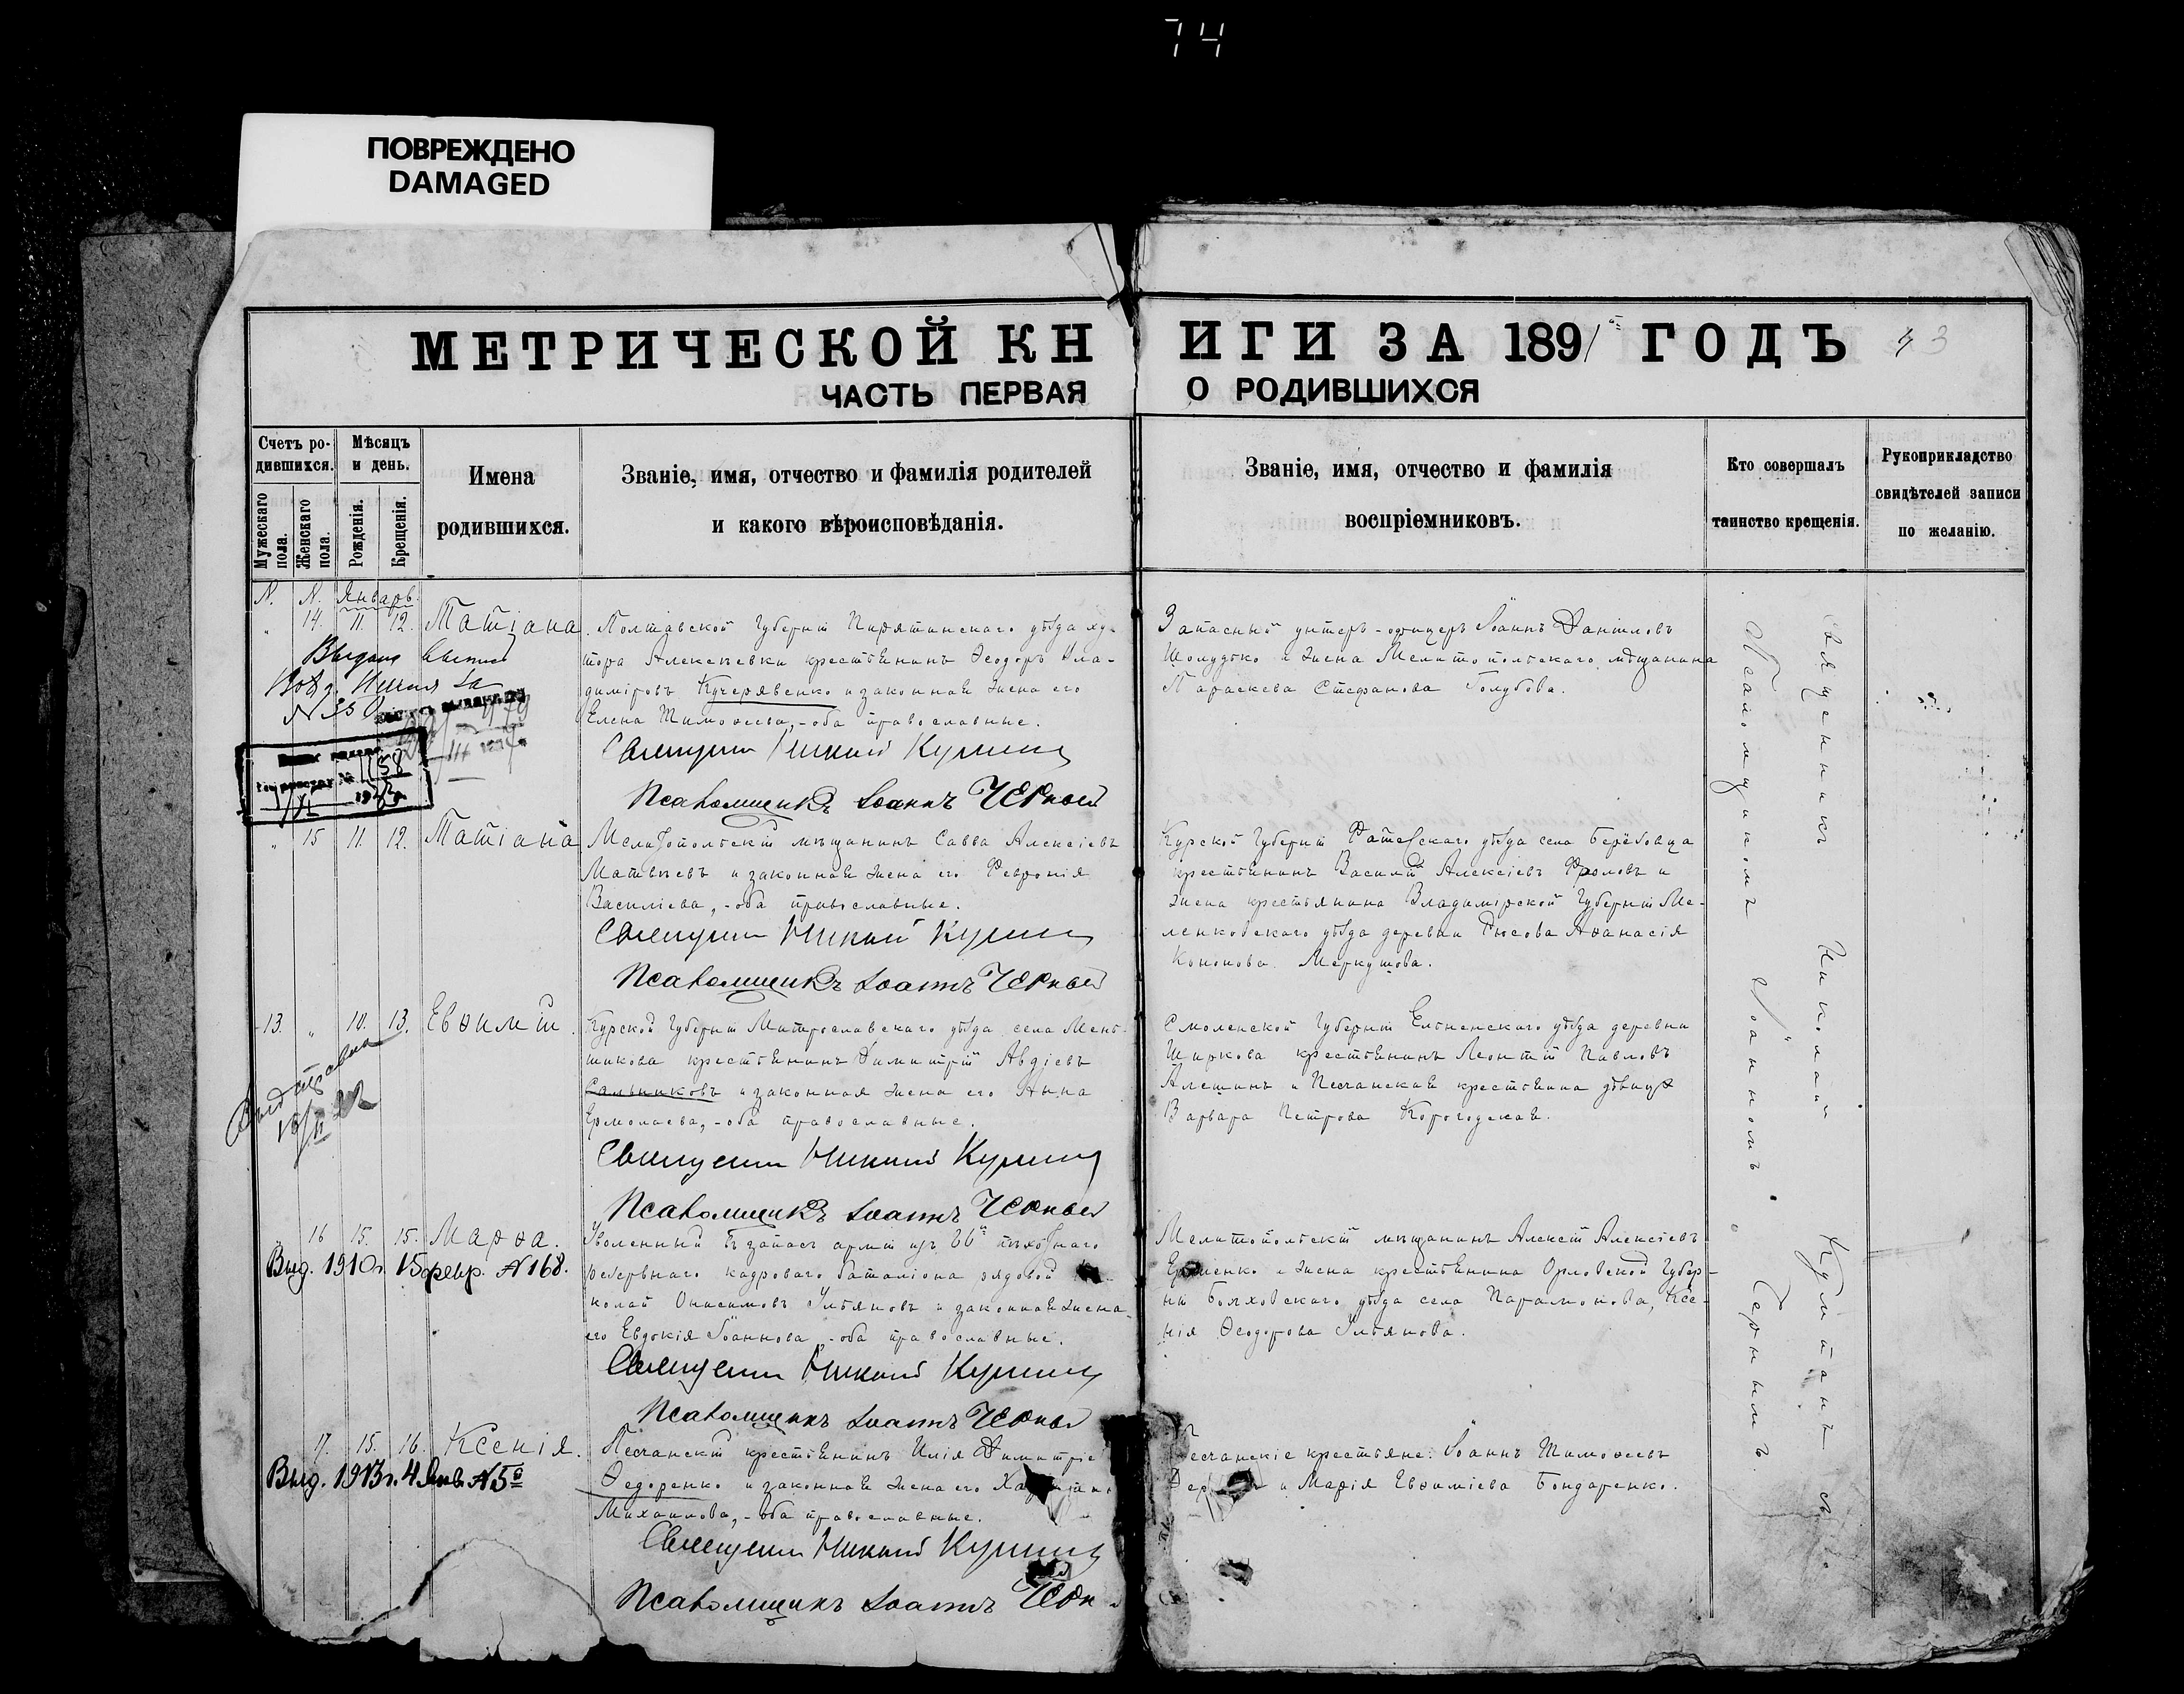 74
ПОВРЕЖДЕНО
DAMAGED
МЕТРИЧЕСКОЙ КНИГИ ЗА 1891 ГОДЪ
43
ЧАСТЬ ПЕРВАЯ О РОДИВШИХСЯ
Счетъ ро-
дившихся.
Мужескаго пола.
Женскаго пола.
Мѣсяцъ
и день.
Рожденія.
Крещенія.
Имена
родившихся.
Званіе, имя, отчество и фамилія родителей
и какого вѣроисповѣданія.
Званіе, имя, отчество и фамилія
воспріемниковъ.
Кто совершалъ
таинство крещенія.
Рукоприкладство
свидѣтелей записи
по желанію.
N. N. Январь.
" 14. 11. 12. Татіана.
Полтавской Губерніи Пирятинскаго уѣзда ху-
тора Алексѣевки крестьянинъ Ѳеодоръ Вла-
диміровъ Кучерявенко и законная жена его
Елена Тимоѳеева, - оба православные.
Священникъ Николай
Псаломщикъ Іоаннъ Черный
Запасный унтеръ-офицеръ Іоаннъ Даніиловъ
Шолудько и жена Мелитопольскаго мѣщанина
Параскева Стефанова Голубова.
1158
" 15 11. 12. Татіана
Мелитопольскій мѣщанинъ Савва Алексіевъ
Матвѣевъ и законная жена его Февронія
Василіева, - оба православные.
Священникъ Николай
Псаломщикъ Іоаннъ Черный
Курской Губерніи Фатежскаго уѣзда села
крестьянинъ Василій Алексіевъ Фроловъ и
жена крестьянина Владимірской Губерніи Ме-
ленковскаго уѣзда деревни Аѳанасія
Кононова Меркушова.
13. " 10. 13. Евѳимій.
Курской Губерніи уѣзда села Мень-
шикова крестьянинъ Димитрій Авдіевъ
Сальниковъ и законная жена его Анна
Ермолаева, - оба православные.
Священникъ Николай
Псаломщикъ Іоаннъ Черный
Смоленской Губерніи Ельненскаго уѣзда деревни
Ширкова крестьянинъ Леонтій Павловъ
Алешинъ и Песчанская крестьянка дѣвица
Варвара Петрова Корогодская.
" 16 15. 15. Марѳа.
Выд. 1910 г. 15 февр. N 168.
Уволенный въ запасъ арміи изъ 66й пѣхотнаго
резервнаго кадроваго баталіона рядовой
колай Онисимовъ Ульяновъ и законная жена
его Евдокія Іоаннова, - оба православные.
Священникъ Николай
Псаломщикъ Іоаннъ Черный
Мелитопольскій мѣщанинъ Алексій Алексіевъ
Еременко и жена крестьянина Орловской Губер-
ніи Болховскаго уѣзда села Парамонова, Ксе-
нія Ѳеодорова Ульянова.
17. 15. 16. Ксенія.
Выд. 1913 г. 4 Янв. N 5
Песчанскій крестьянинъ Илія Димитріе
Ѳедоренко и законная жена его
Михаилова, - оба православные.
Священникъ Николай
Псаломщикъ Іоаннъ
Песчанскіе крестьяне: Іоаннъ Тимоѳеевъ
и Марія Евѳиміева Бондаренко.
Священникъ Николай
съ
Псаломщикомъ Іоанномъ Чернымъ